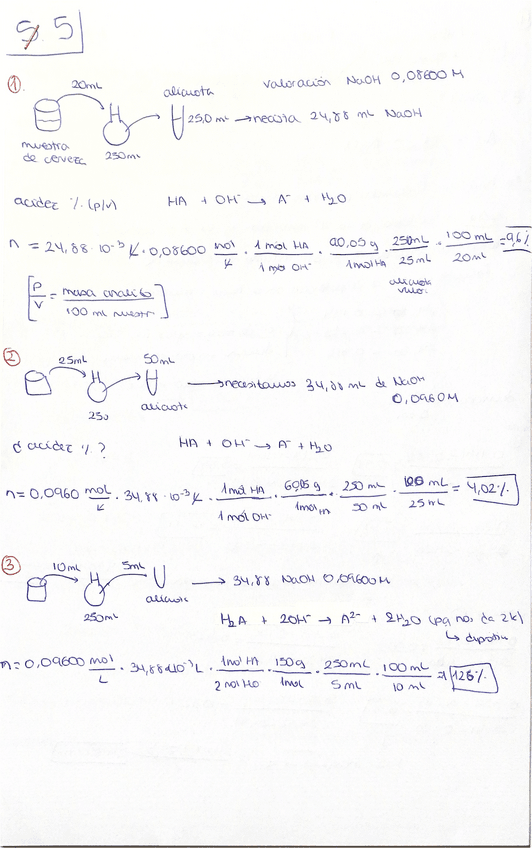 S. 5
① valoración NaOH 0,08600 M
20mL alicuota
25,0 mL → necesita 24,88 mL NaOH
muestra de cerveza
250mL
acidez % (p/v) HA + OH⁻ → A⁻ + H₂O
n = 24,88·10⁻³ L · 0,08600 mol/L · 1mol HA/1mol OH⁻ · 90,05 g/1mol HA · 250mL/25mL · 100mL/20mL = 9,6%
alicuota
[P/V = masa analito/100 ml muestr]
② 25mL 50mL
→ necesitamos 34,88 mL de NaOH
250 alicuota 0,0960M
¿acidez %? HA + OH⁻ → A⁻ + H₂O
n = 0,0960 mol/L · 34,88·10⁻³ L · 1mol HA/1mol OH⁻ · 60,05 g/1mol · 250 mL/50 mL · 100 mL/25mL = 4,02%
③ 10mL 5mL
→ 34,88 NaOH 0,09600M
250mL alicuota
H₂A + 2OH⁻ → A²⁻ + 2H₂O (pq nos da 2k)
n = 0,09600 mol/L · 34,88·10⁻³ L · 1mol HA/2mol · 150g/1mol · 250mL/5mL · 100mL/10mL = 126%